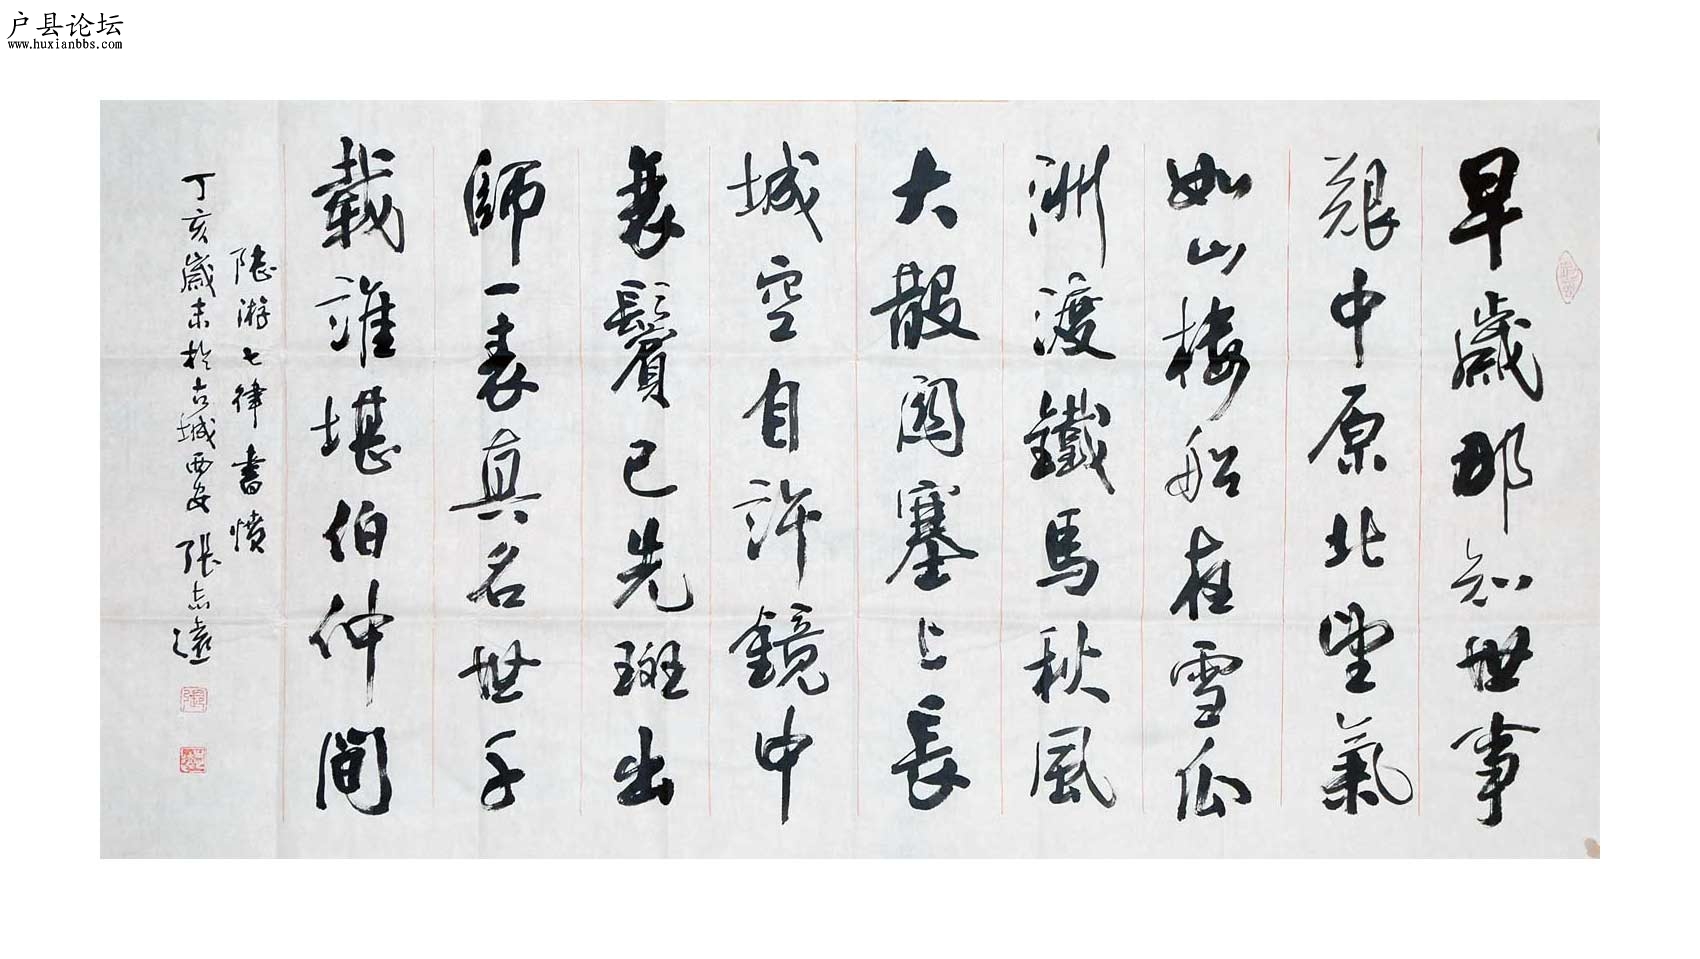 户县论坛
www.huxianbbs.com
早歲那知世事
艱中原北望氣
如山樓船夜雪瓜
洲渡鐵馬秋風
大散関塞上長
城空自許鏡中
衰鬢已先斑出
師一表真名世千
載誰堪伯仲間
陸游七律書憤
丁亥歲末於古城西安 張志遠